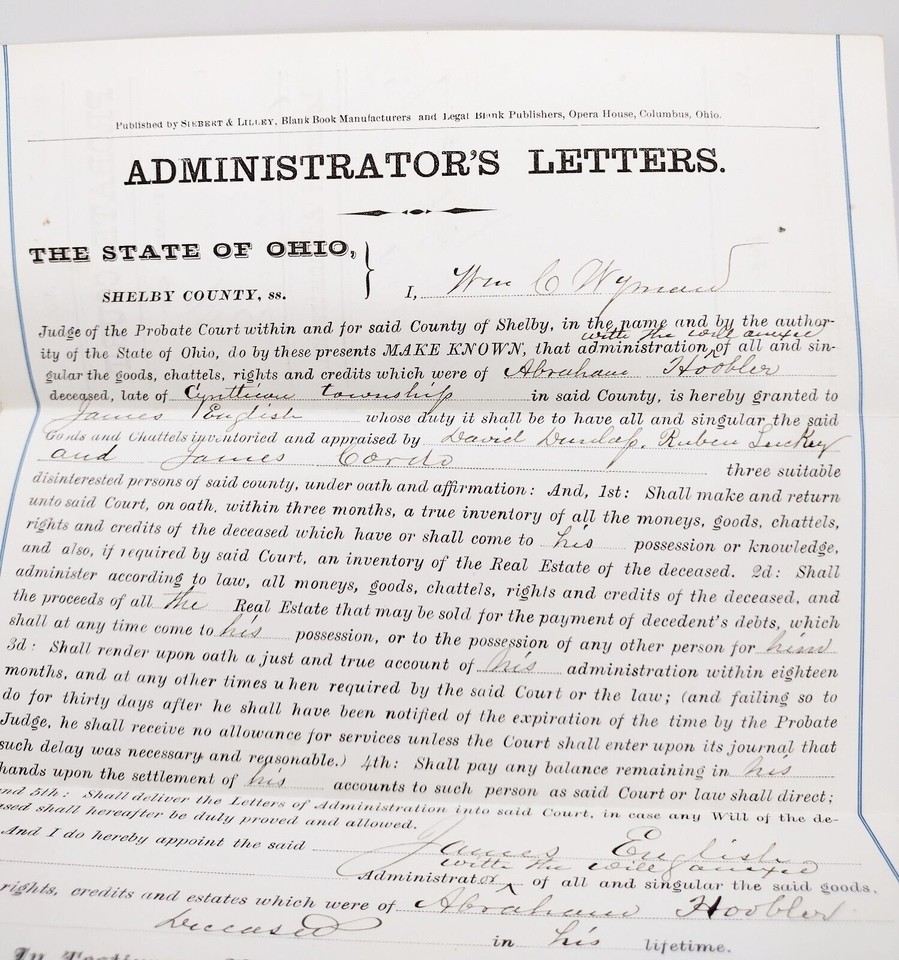 Published by SIEBERT & LILLEY, Blank Book Manufacturers and Legal Blank Publishers, Opera House, Columbus, Ohio.
ADMINISTRATOR'S LETTERS.
THE STATE OF OHIO,
SHELBY COUNTY, ss.
I, Wm C Wyman
Judge of the Probate Court within and for said County of Shelby, in the name and by the author-
with the will annexed
ity of the State of Ohio, do by these presents MAKE KNOWN, that administration ^ of all and sin-
gular the goods, chattels, rights and credits which were of Abraham Hoobler
deceased, late of Cynthian township in said County, is hereby granted to
James English whose duty it shall be to have all and singular the said
Goods and Chattels inventoried and appraised by David Dunlap, Ruben Luckey
and James three suitable
disinterested persons of said county, under oath and affirmation: And, 1st: Shall make and return
unto said Court, on oath, within three months, a true inventory of all the moneys, goods, chattels,
rights and credits of the deceased which have or shall come to his possession or knowledge,
and also, if required by said Court, an inventory of the Real Estate of the deceased. 2d: Shall
administer according to law, all moneys, goods, chattels, rights and credits of the deceased, and
the proceeds of all the Real Estate that may be sold for the payment of decedent's debts, which
shall at any time come to his possession, or to the possession of any other person for him
3d: Shall render upon oath a just and true account of his administration within eighteen
months, and at any other times when required by the said Court or the law; (and failing so to
do for thirty days after he shall have been notified of the expiration of the time by the Probate
Judge, he shall receive no allowance for services unless the Court shall enter upon its journal that
such delay was necessary and reasonable.) 4th: Shall pay any balance remaining in his
hands upon the settlement of his accounts to such person as said Court or law shall direct;
and 5th: Shall deliver the Letters of Administration into said Court, in case any Will of the de-
ased shall hereafter be duly proved and allowed.
And I do hereby appoint the said James English
with the will annexed
Administrator ^ of all and singular the said goods,
rights, credits and estates which were of Abraham Hoobler
Deceased in his lifetime.